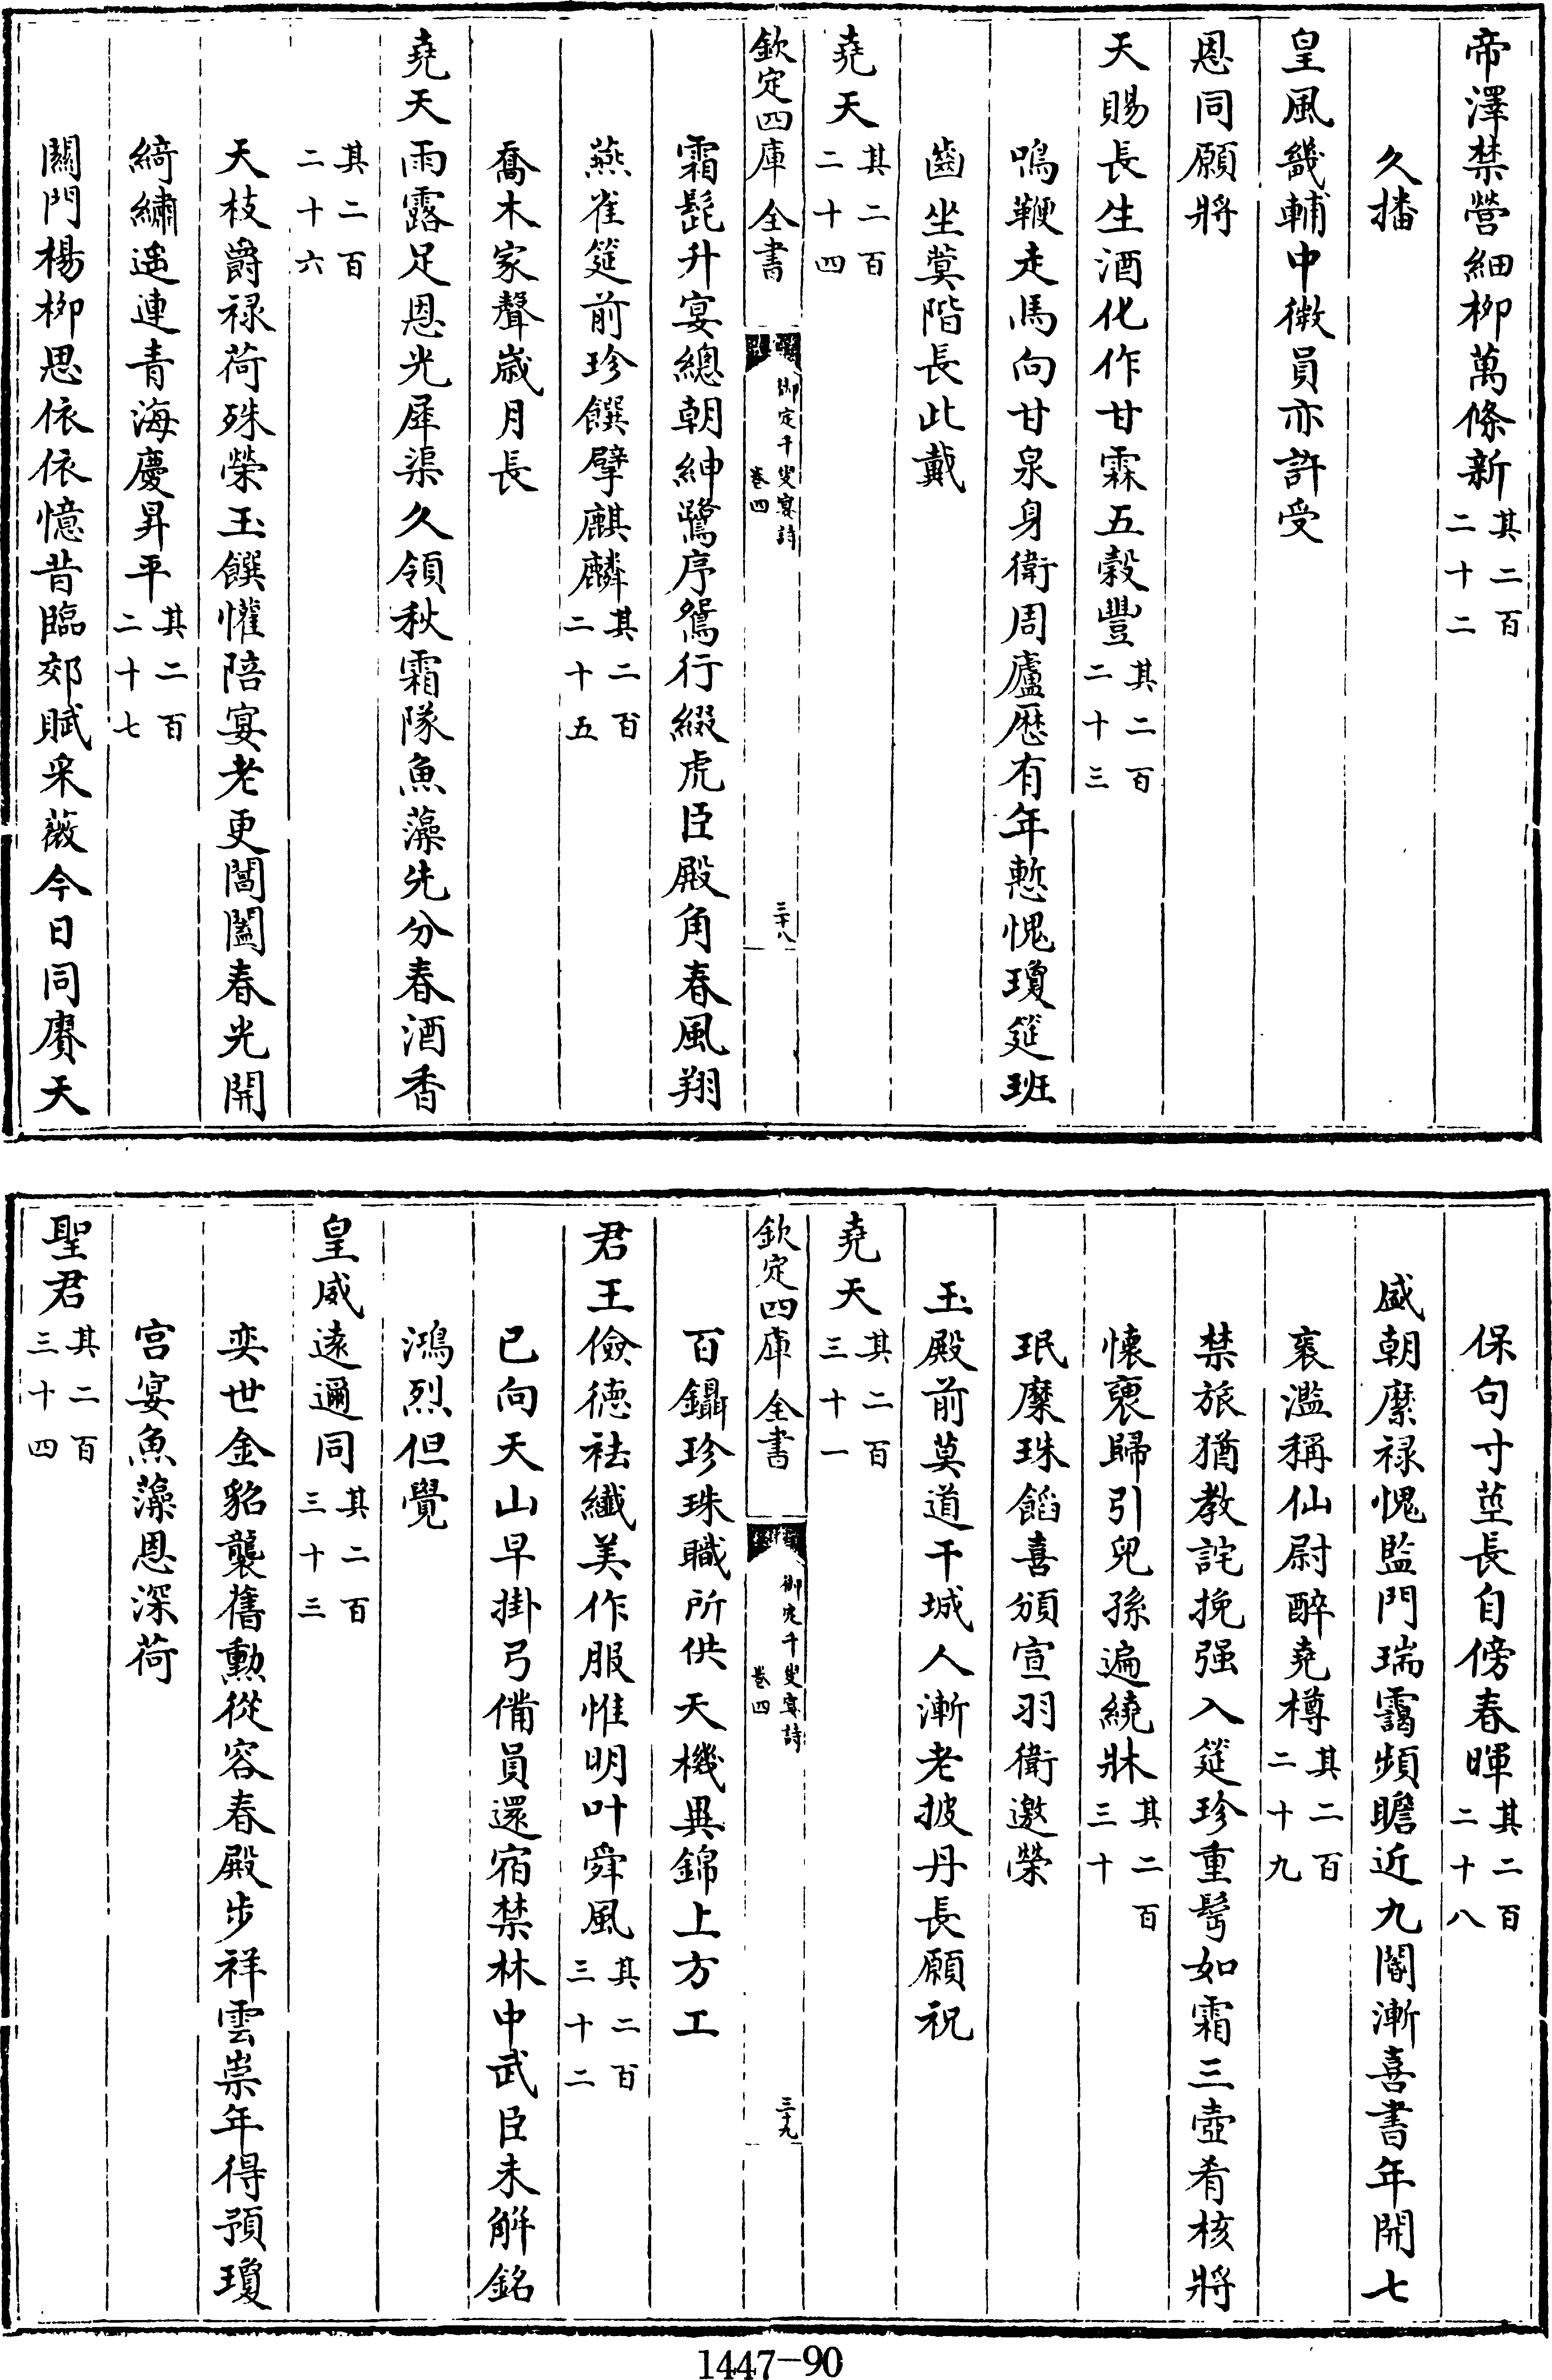 帝澤禁營細柳萬條新其二百二十二
久播
皇風畿輔中微員亦許受
恩同願將
天賜長生酒化作甘霖五穀豐其二百二十三
鳴鞭走馬向甘泉身衛周廬歴有年慙愧瓊筵班
齒坐蓂階長此戴
堯天其二百二十四
欽定四庫全書
御定千叟宴詩
卷四
三十八
霜髭升宴總朝紳鷺序鴛行綴虎臣殿角春風翔
燕雀筵前珍饌擘麒麟其二百二十五
喬木家聲歳月長
堯天雨露足恩光犀渠久領秋霜隊魚藻先分春酒香
其二百二十六
天枝爵禄荷殊榮玉饌懽陪宴老更閶闔春光開
綺繡遥連青海慶昇平其二百二十七
關門楊柳思依依憶昔臨郊賦采薇今日同賡天
保句寸莖長自傍春暉其二百二十八
盛朝縻禄愧監門瑞靄頻瞻近九閽漸喜書年開七
袠濫稱仙尉醉堯樽其二百二十九
禁旅猶教詫挽强入筵珍重鬂如霜三壺肴核將
懷裛歸引兒孫遍繞牀其二百三十
珉糜珠餡喜頒宣羽衛邀榮
玉殿前莫道干城人漸老披丹長願祝
堯天其二百三十一
欽定四庫全書
御定千叟宴詩
卷四
三十九
百鑷珍珠職所供天機異錦上方工
君王儉德袪纎美作服惟明叶舜風其二百三十二
已向天山早掛弓備員還宿禁林中武臣未解銘
鴻烈但覺
皇威遠邇同其二百三十三
奕世金貂襲舊勲從容春殿步祥雲崇年得預瓊
宫宴魚藻恩深荷
聖君其二百三十四
1447-90